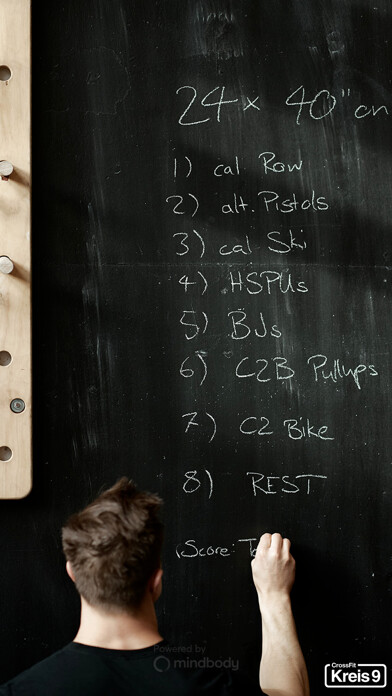 24 x 40" on
1) cal Row
2) alt. Pistols
3) cal Ski
4) HSPUs
5) BJs
6) C2B Pullups
7) C2 Bike
8) REST
(Score: T
Powered by
mindbody
CrossFit
Kreis 9